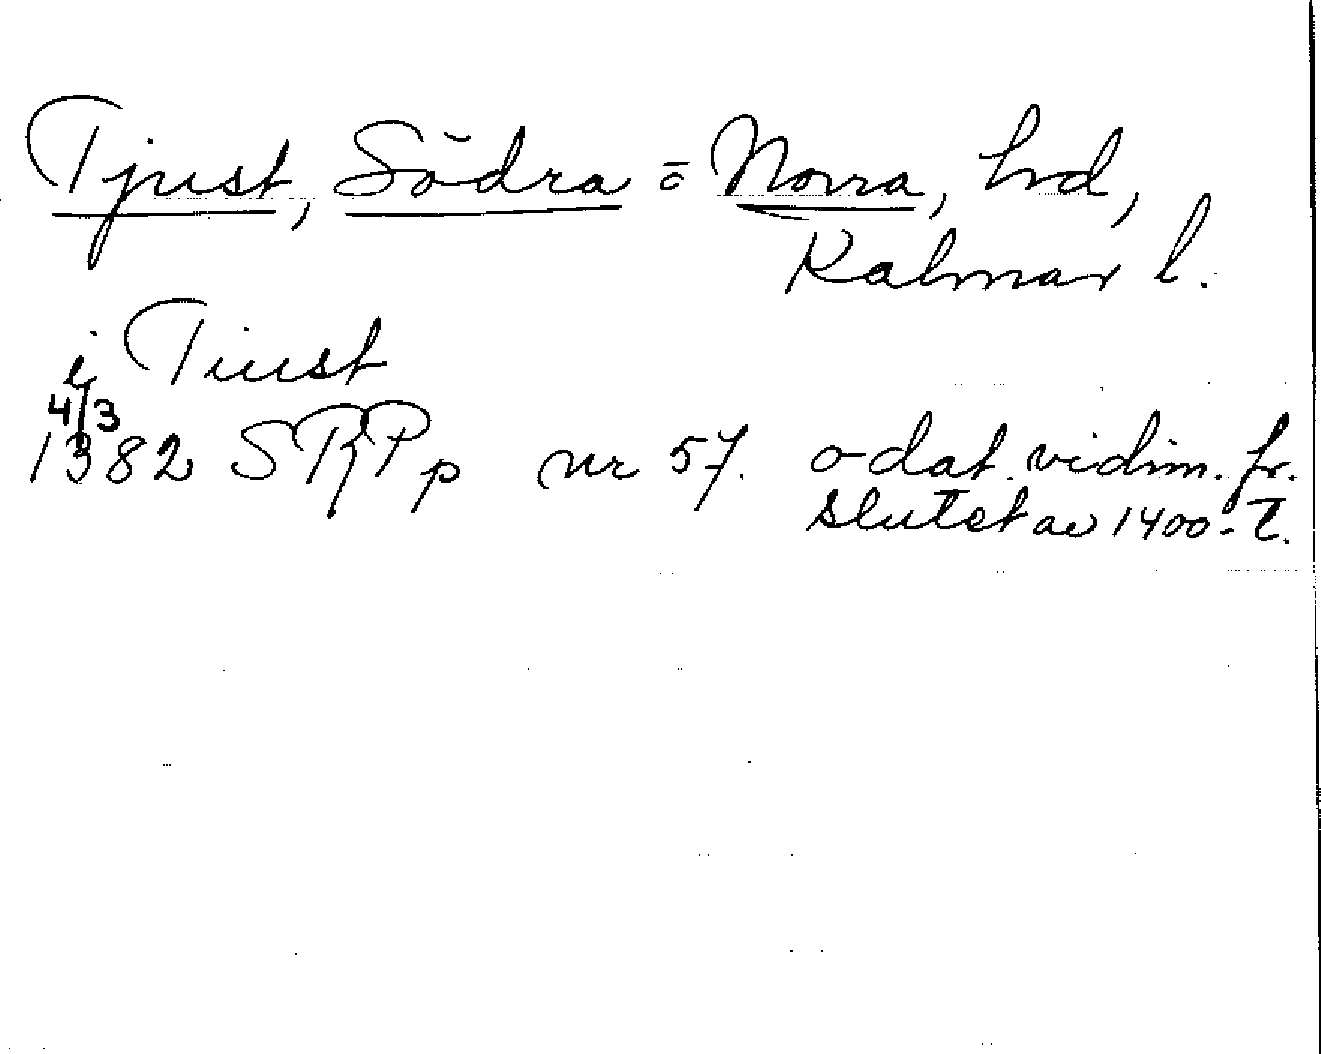 Tjust, Södra o Norra, hd,
Kalmar l.
i Tiust
4/3
1382 SRPp nr 57. odat. vidim. fr.
slutet av 1400-t.